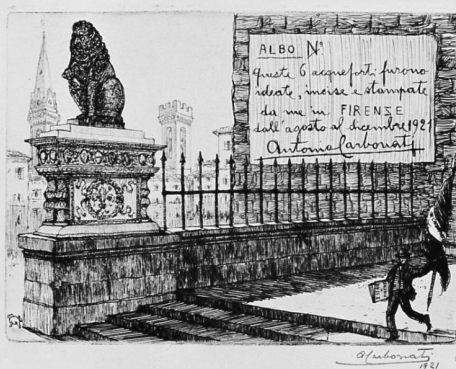 ALBO N°
Queste 6 acqueforti furono
ideate, incise e stampate
da me in FIRENZE
dall'agosto al dicembre 1921
Antonio Carbonati
ACarbonati
1921